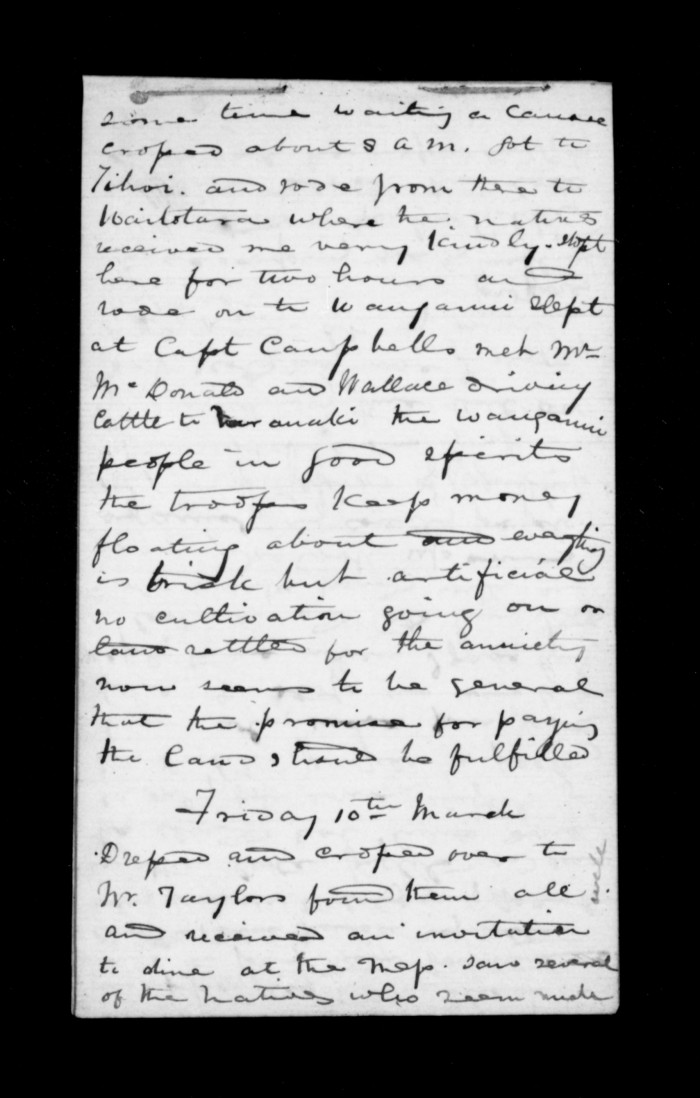 some time waiting a canoe
croped about 8 A M. got to
Tihoi. and rode from there to
Waitotara where the natives
received me verry kindly. stopt
here for two hours and
rode on to Wanganui slept
at Capt Campbells met Mr
Mc Donald and Wallace driving
Cattle to Taranaki the Wanganui
people in good spirits
the troops keep money
floating about and everything
is brisk but artificial
no cultivation going on or
land settled for the anxiety
now seems to be general
that the promise for paying
the land should be fulfilled
Friday 10th March
Dressed and crossed over to
Mr. Taylors found them all well
and received an invitation
to dine at the Mess. saw several
of the Natives who seem much